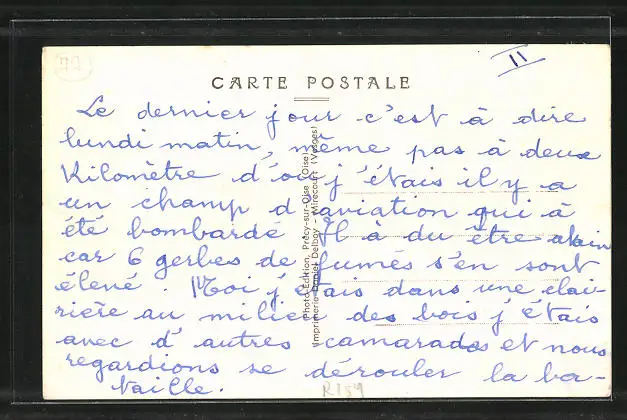 77
II
CARTE POSTALE
Le dernier jour c'est à dire
lundi matin, même pas à deux
Kilomètre d'où j'étais il y a
un champ d'aviation qui à
été bombardé Il à du être atein
car 6 gerbes de fumés s'en sont
élevé. Moi j'étais dans une clai-
rière au milieu des bois j'étais
avec d'autres camarades et nous
regardions se dérouler la ba-
taille.
Photo-Edition, Précy-sur-Oise (Oise)
Imprimerie Daniel Delboy - Mirecourt (Vosges)
R159